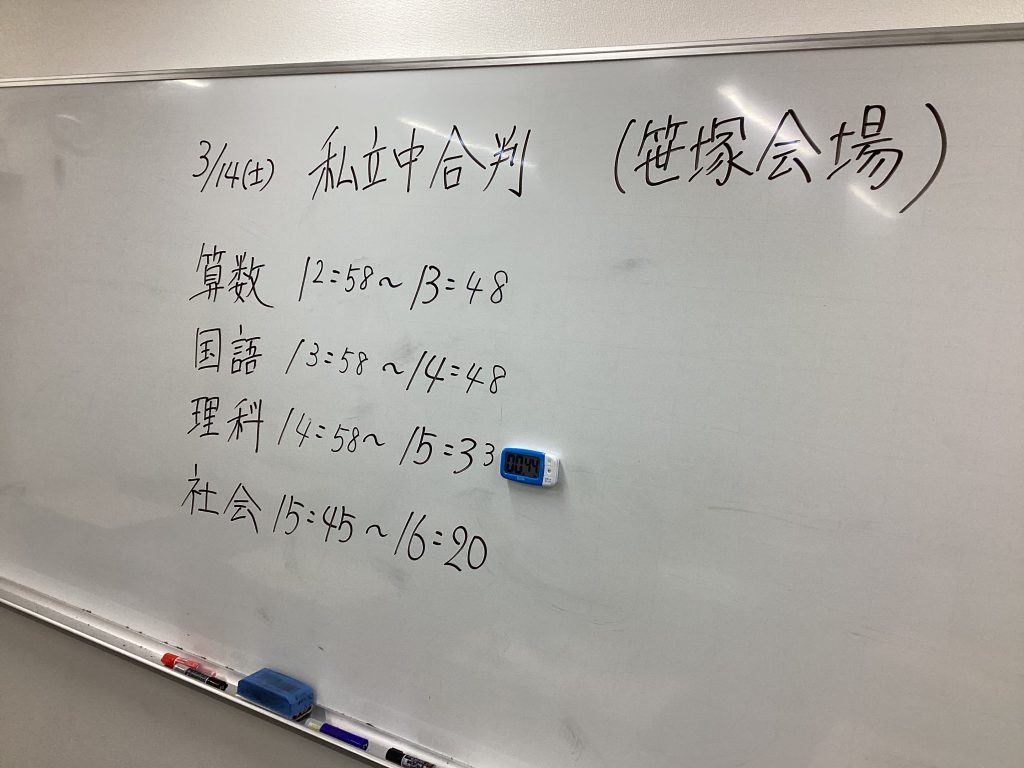 3/14(土) 私立中合判 (笹塚会場)
算数 12:58～13:48
国語 13:58～14:48
理科 14:58～15:33
社会 15:45～16:20
00:44